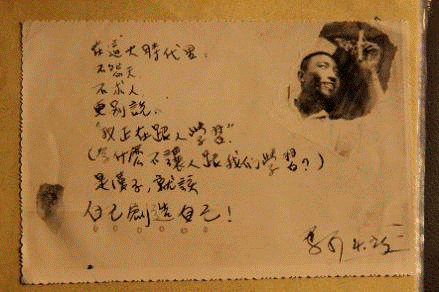 在這大時代里,
不怨天
不求人,
更别說,
"我正在跟人學習".
(為什麽不讓人跟我們學習?)
是漢子,就該
自己創造自己!